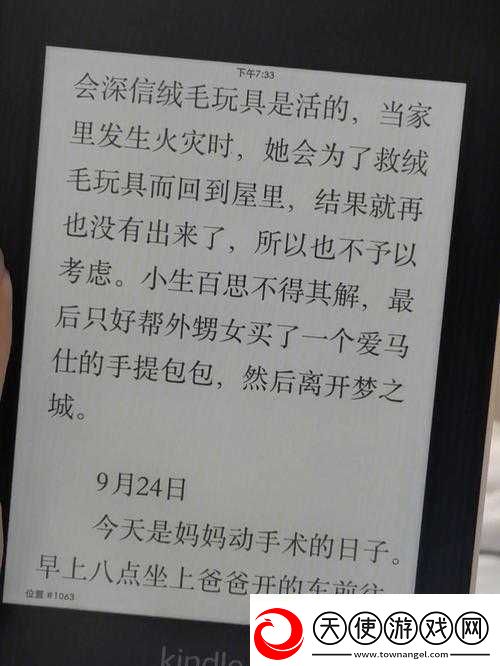 下午7:33
会深信绒毛玩具是活的，当家
里发生火灾时，她会为了救绒
毛玩具而回到屋里，结果就再
也没有出来了，所以也不予以
考虑。小生百思不得其解，最
后只好帮外甥女买了一个爱马
仕的手提包包，然后离开梦之
城。
9月24日
今天是妈妈动手术的日子。
早上八点坐上爸爸开的车前往
位置 #1063
kindle
天使游戏网
www.townangel.com